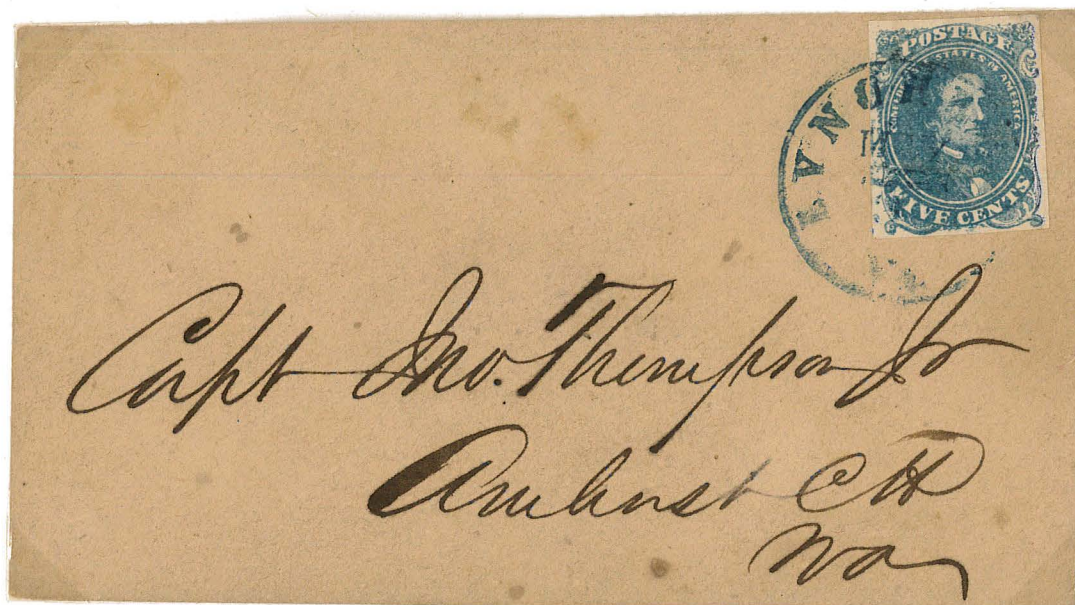 POSTAGE
CONFEDERATE STATES OF AMERICA
FIVE CENTS
LYNCH
VA
Capt Jno. Thompson Jr
Amherst CH
Va